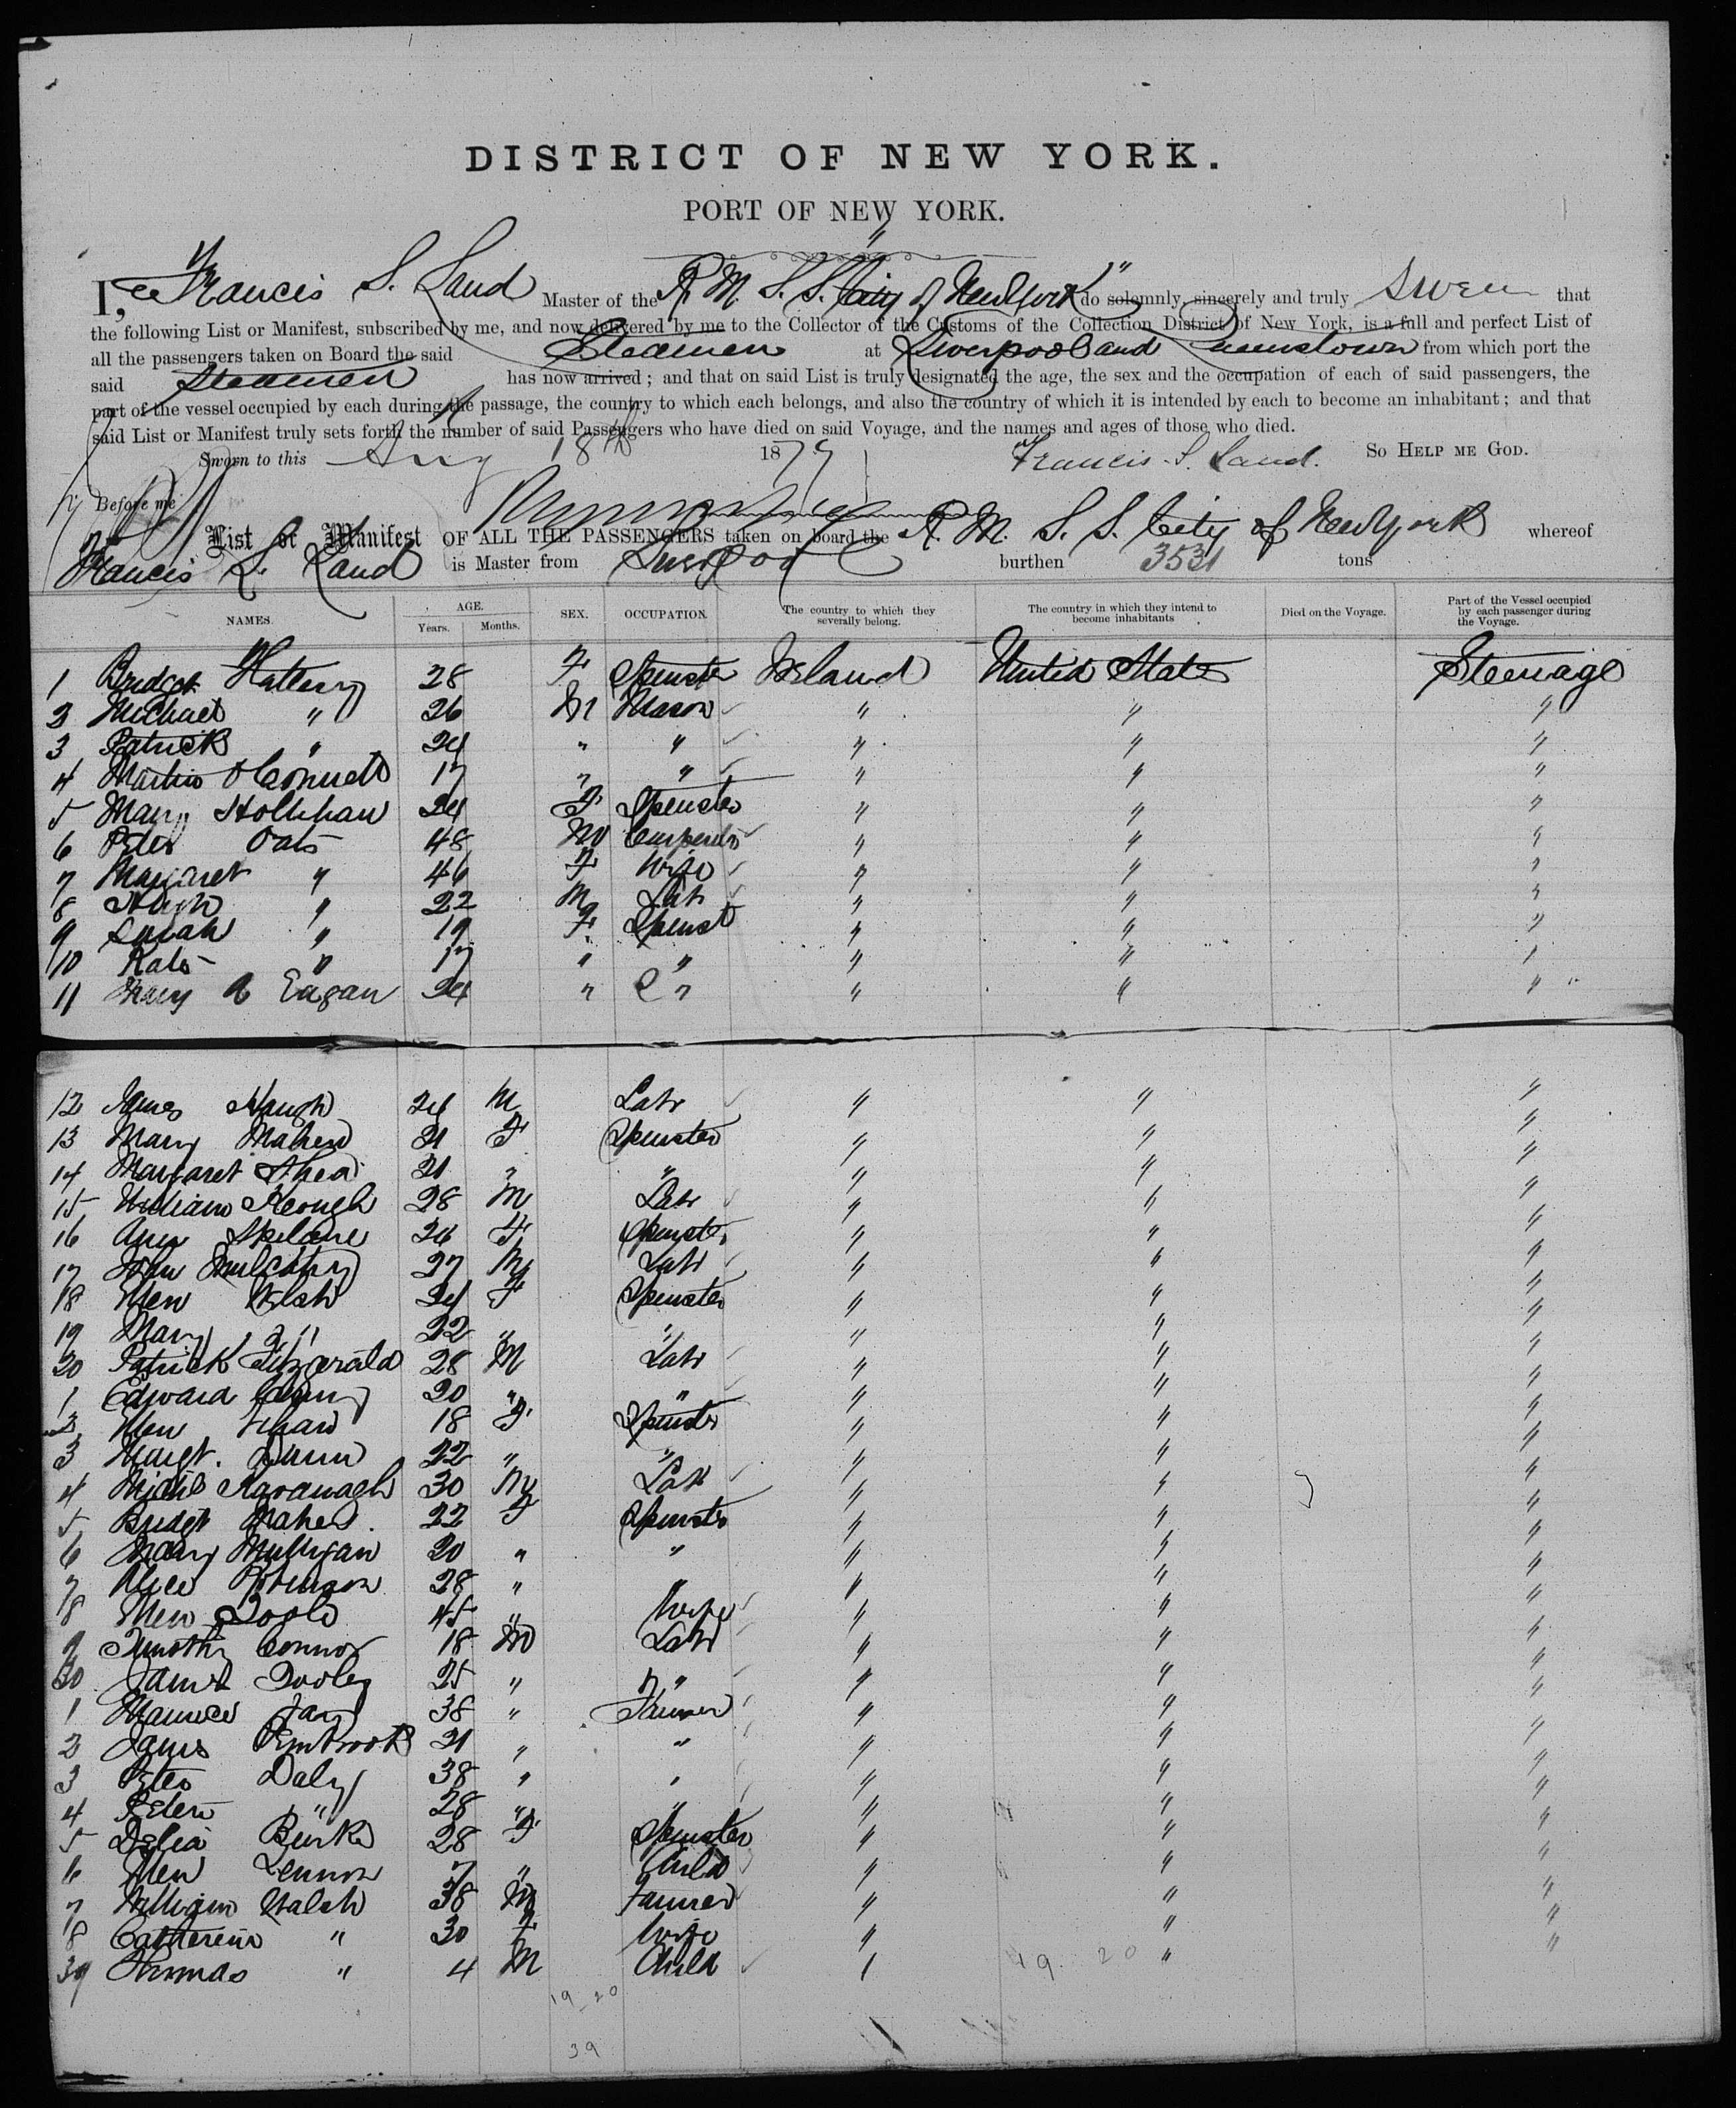 DISTRICT OF NEW YORK.
PORT OF NEW YORK.
I, Francis S. Land Master of the R. M. S. S. City of New York" do solemnly, sincerely and truly swear that
the following List or Manifest, subscribed by me, and now delivered by me to the Collector of the Customs of the Collection District of New York, is a full and perfect List of
all the passengers taken on Board the said Steamer at Liverpool and Queenstown from which port the
said Steamer has now arrived; and that on said List is truly designated the age, the sex and the occupation of each of said passengers, the
part of the vessel occupied by each during the passage, the country to which each belongs, and also the country of which it is intended by each to become an inhabitant; and that
said List or Manifest truly sets forth the number of said Passengers who have died on said Voyage, and the names and ages of those who died.
Sworn to this Aug 18th 1879 Francis S. Land. SO HELP ME GOD.
Before me
List or Manifest OF ALL THE PASSENGERS taken on board the R. M. S. S. City of New York whereof
Francis S. Land is Master from Liverpool burthen 3531 tons
NAMES. AGE. Years. Months. SEX. OCCUPATION. The country to which they severally belong. The country in which they intend to become inhabitants Died on the Voyage. Part of the Vessel occupied by each passenger during the Voyage.
1 Bridget Flattery 28 F Spinster Ireland United States Steerage
2 Michael " 26 M Mason " " "
3 Patrick " 24 " " " " "
4 Martin O'Connell 17 " " " " "
5 Mary Holohan 24 F Spinster " " "
6 Peter Oats 48 M Carpenter " " "
7 Margaret " 46 F Wife " " "
8 Hugh " 22 M Labr " " "
9 Sarah " 19 F Spinst " " "
10 Kate " 17 " " " " "
11 Mary A Eagan 24 " " " " "
12 James Haugh 24 M Labr " " "
13 Mary Maher 21 F Spinster " " "
14 Margaret Shea 21 " " " " "
15 William Keough 28 M Labr " " "
16 Ann 26 F Spinster " " "
17 John Mulcahy 27 M Labr " " "
18 Ellen Welsh 24 F Spinster " " "
19 Mary " 22 " " " " "
20 Patrick Fitzgerald 28 M Labr " " "
1 Edward 20 " " " " "
2 Ellen 18 F Spinster " " "
3 Margt. Dunn 22 " " " " "
4 Michl Kavanagh 30 M Labr " " "
5 Bridgt Maher 22 F Spinster " " "
6 Mary Mulligan 20 " " " " "
7 Alice Robinson 28 " " " " "
8 Ellen Doole 45 " Wife " " "
9 Timothy Connor 18 M Labr " " "
30 James Dooley 25 " " " " "
1 Maurice 38 " Farmer " " "
2 James Pembrook 21 " " " " "
3 Peter Daly 38 " " " " "
4 Peter " 28 " " " " "
5 Delia Burke 28 F Spinster " " "
6 Ellen Lennon 7 " Child " " "
7 William Walsh 38 M Farmer " " "
8 Catherine " 30 F Wife " " "
39 Thomas " 4 M Child " "
19 20
19_20
39